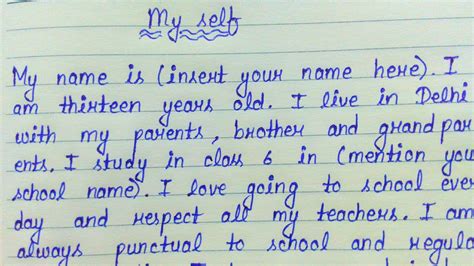 My self
My name is (insert your name here). I
am thirteen years old. I live in Delhi
with my parents, brother and grand par
ents. I study in class 6 in (mention you
school name). I love going to school ever
day and respect all my teachers. I am
always punctual to school and regula